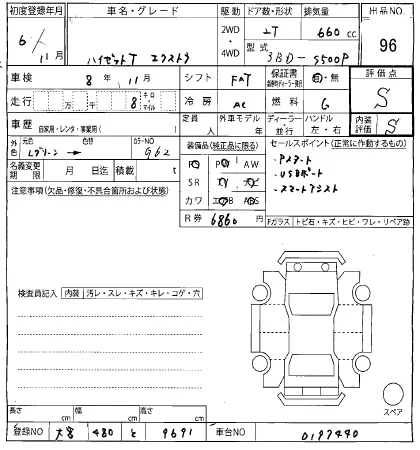 初度登録年月 車名・グレード 駆動 ドア数・形状 排気量 出品NO.
6年 11月 ハイゼットT エクストラ 2WD・4WD 2T 660cc 96
型式 3BD-S500P
車検 8年11月 シフト FAT 保証書 有・無 評価点
走行 万 千 8 キロ・マイル 冷房 AC 燃料 G S
車歴 自家用・レンタ・事業用( ) 定員 人 外車モデル 年 ディーラー・並行 ハンドル 左・右 内装評価 S
外色 元色 Lグリーン → 色替 カラーNO G62
装備品(純正品に限る) セールスポイント(正常に作動するもの)
名義変更期限 月 日迄 積載 t
PS PW AW
SR TV ナビ
カワ エアB ABS
・Pスタート
・USBポート
・スマートアシスト
注意事項(欠品・修復・不具合箇所および状態)
R券 6860円 Fガラス トビ石・キズ・ヒビ・ワレ・リペア跡
検査員記入 内装 汚レ・スレ・キズ・キレ・コゲ・穴
スペア
長さ cm 幅 cm 高さ cm
登録NO 大宮 480 と 9691 車台NO 0197440